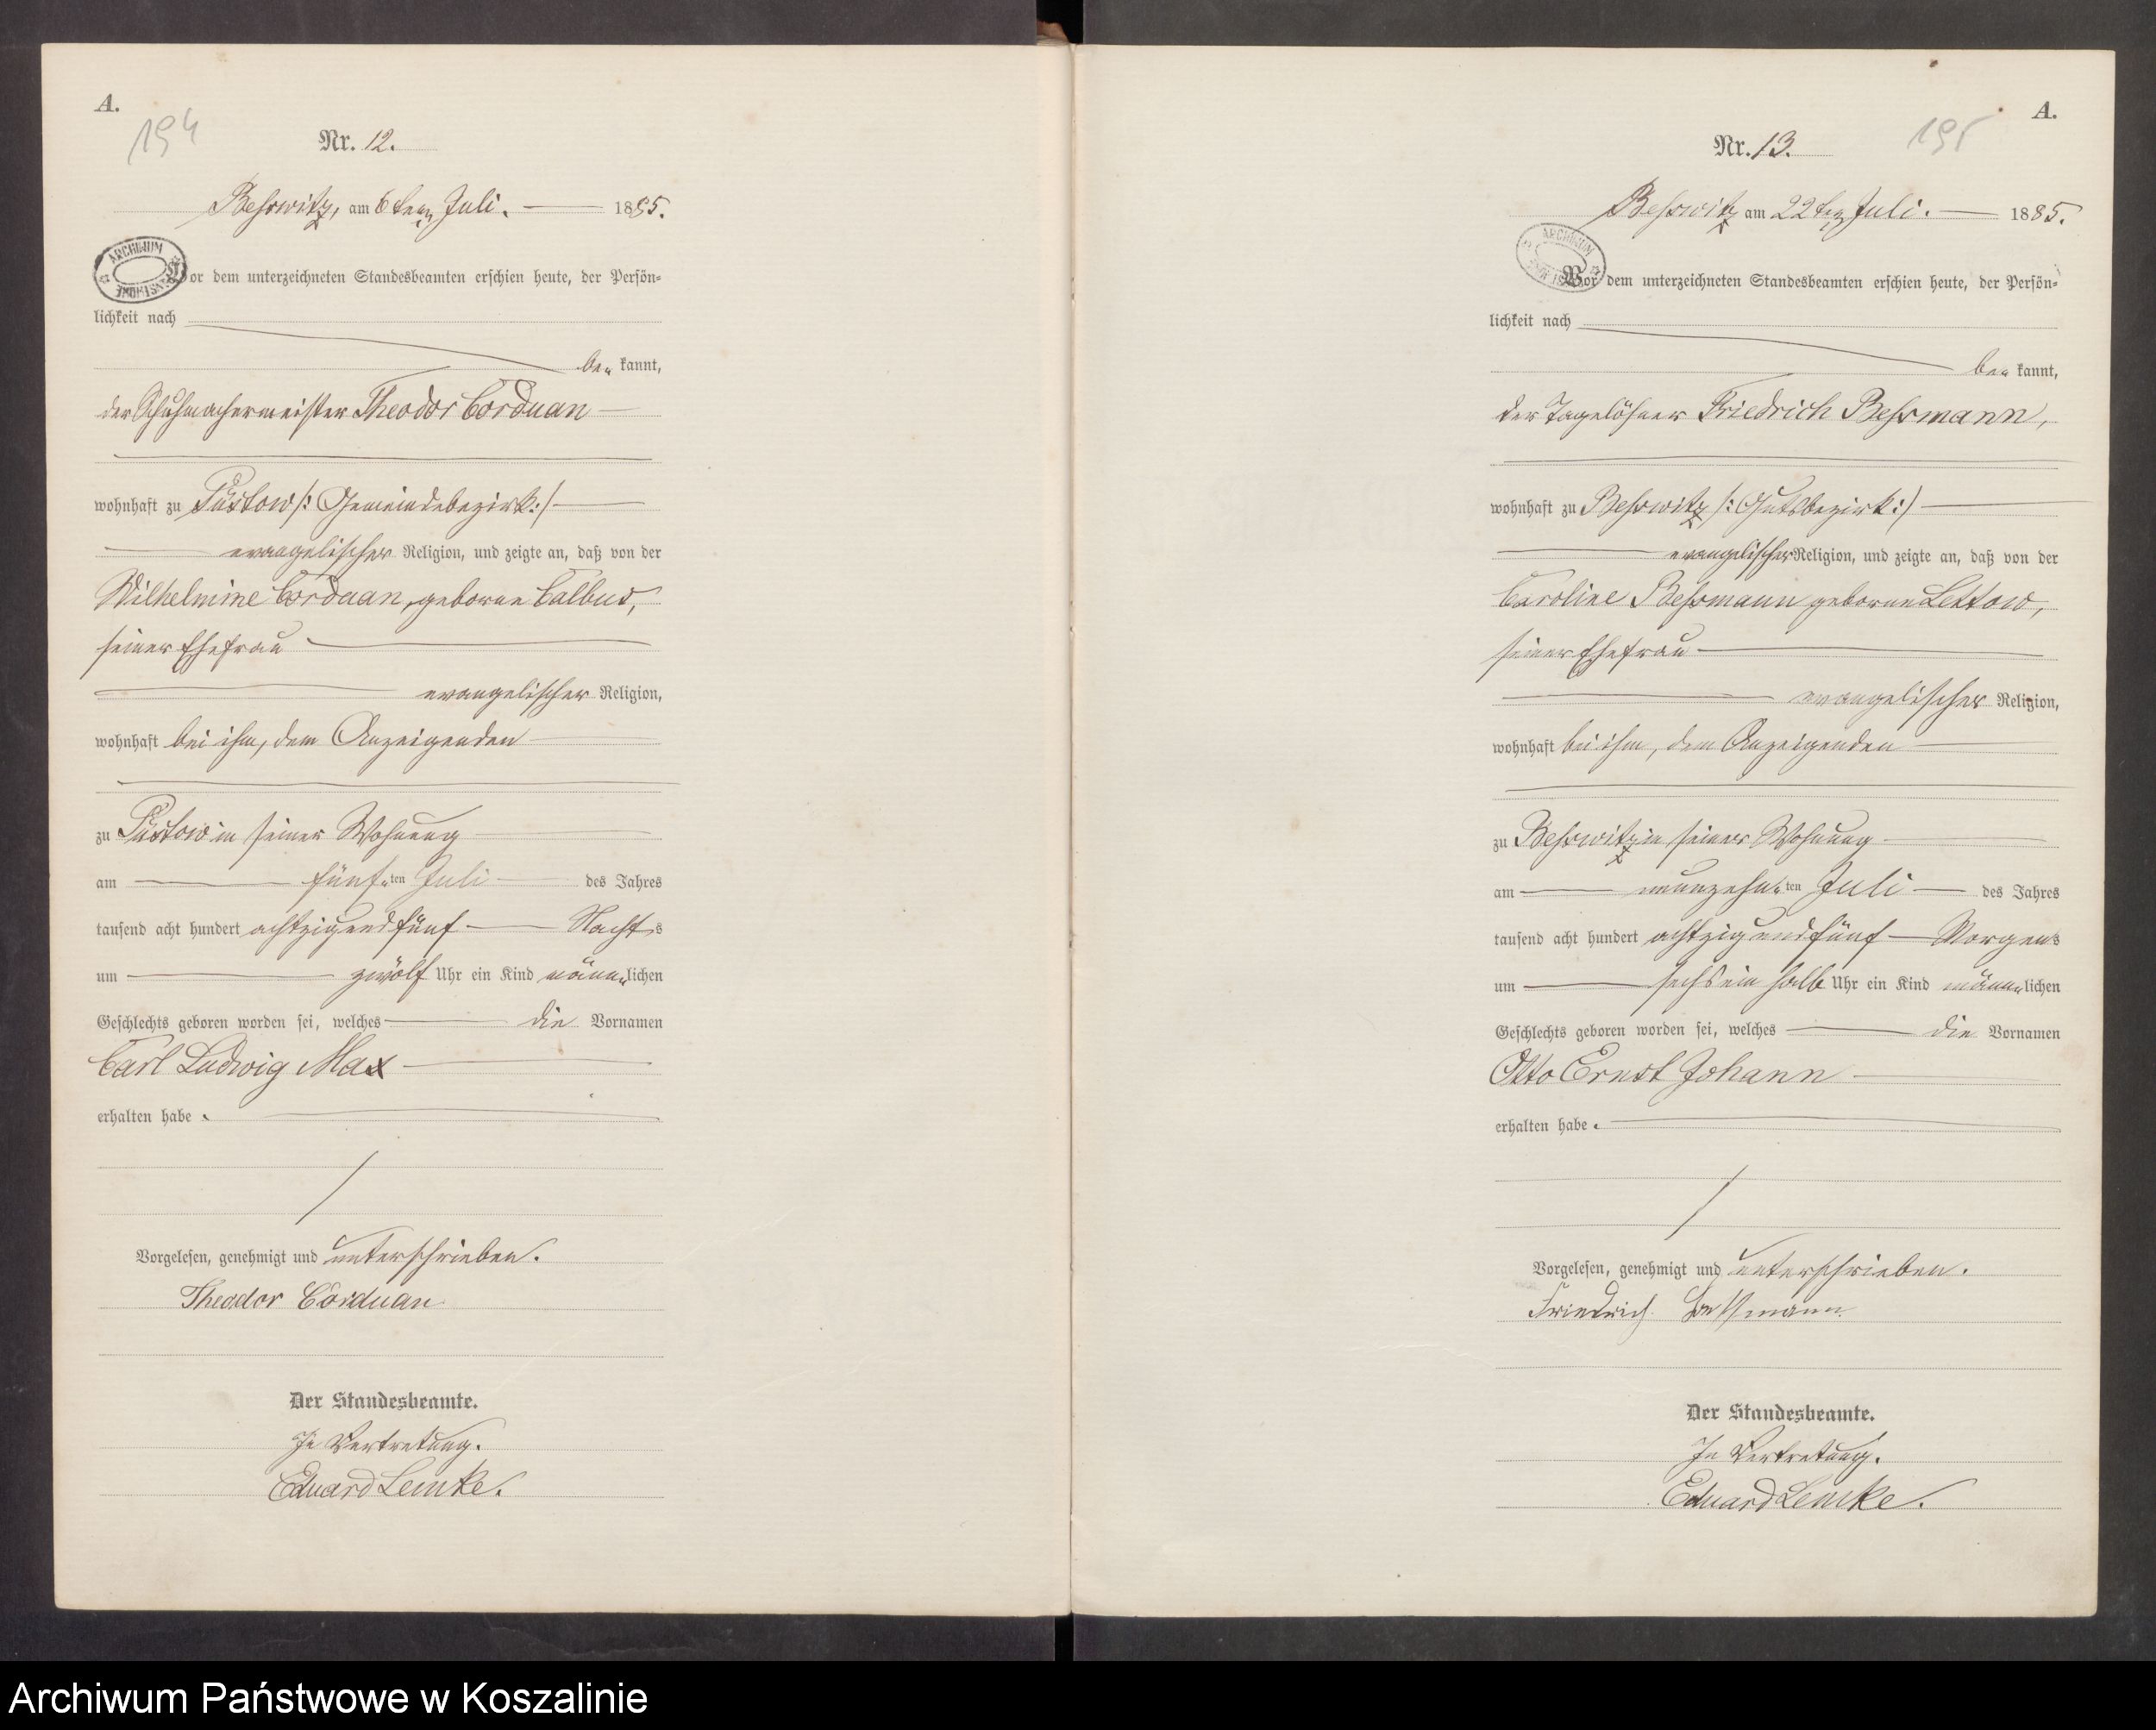 A.
194
Nr. 12.
Beßwitz, am 6ten Juli. 1885.
ARCHIWUM
Vor dem unterzeichneten Standesbeamten erschien heute, der Persön-
lichkeit nach
be kannt,
der Schuhmachermeister Theodor Corduan
wohnhaft zu Püstow /: Gemeindebezirk :/
evangelischer Religion, und zeigte an, daß von der
Wilhelmine Corduan, geborne Calbus,
seiner Ehefrau
evangelischer Religion,
wohnhaft bei ihm, dem Anzeigenden
zu Püstow in seiner Wohnung
am fünften Juli des Jahres
tausend acht hundert achtzig und fünf Nachts
um zwölf Uhr ein Kind männlichen
Geschlechts geboren worden sei, welches die Vornamen
Carl Ludwig Max
erhalten habe.
Vorgelesen, genehmigt und unterschrieben.
Theodor Corduan
Der Standesbeamte.
In Vertretung.
Eduard Lemke.
A.
195
Nr. 13.
Beßwitz am 22ten Juli. 1885.
ARCHIWUM
Vor dem unterzeichneten Standesbeamten erschien heute, der Persön-
lichkeit nach
be kannt,
der Tagelöhner Friedrich Beßmann,
wohnhaft zu Beßwitz /: Gutsbezirk :/
evangelischer Religion, und zeigte an, daß von der
Caroline Beßmann geborne Lettow,
seiner Ehefrau
evangelischer Religion,
wohnhaft bei ihm, dem Anzeigenden
zu Beßwitz in seiner Wohnung
am neunzehnten Juli des Jahres
tausend acht hundert achtzig und fünf Morgens
um sechs ein halb Uhr ein Kind männlichen
Geschlechts geboren worden sei, welches die Vornamen
Otto Ernst Johann
erhalten habe.
Vorgelesen, genehmigt und unterschrieben.
Friedrich Bessmann.
Der Standesbeamte.
In Vertretung.
Eduard Lemke.
Archiwum Państwowe w Koszalinie